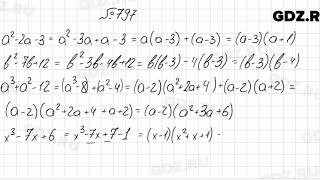 GDZ.R
№797
a²-2a-3 = a²-3a+a-3 = a(a-3)+(a-3) = (a-3)(a+1)
b²-7b+12 = b²-3b-4b+12 = b(b-3)-4(b-3) = (b-3)(b-4)
a³+a²-12 = (a³-8)+(a²-4) = (a-2)(a²+2a+4)+(a-2)(a+2) =
= (a-2)(a²+2a+4+a+2) = (a-2)(a²+3a+6)
x³-7x+6 = x³-7x+7-1 = (x-1)(x²+x+1)-